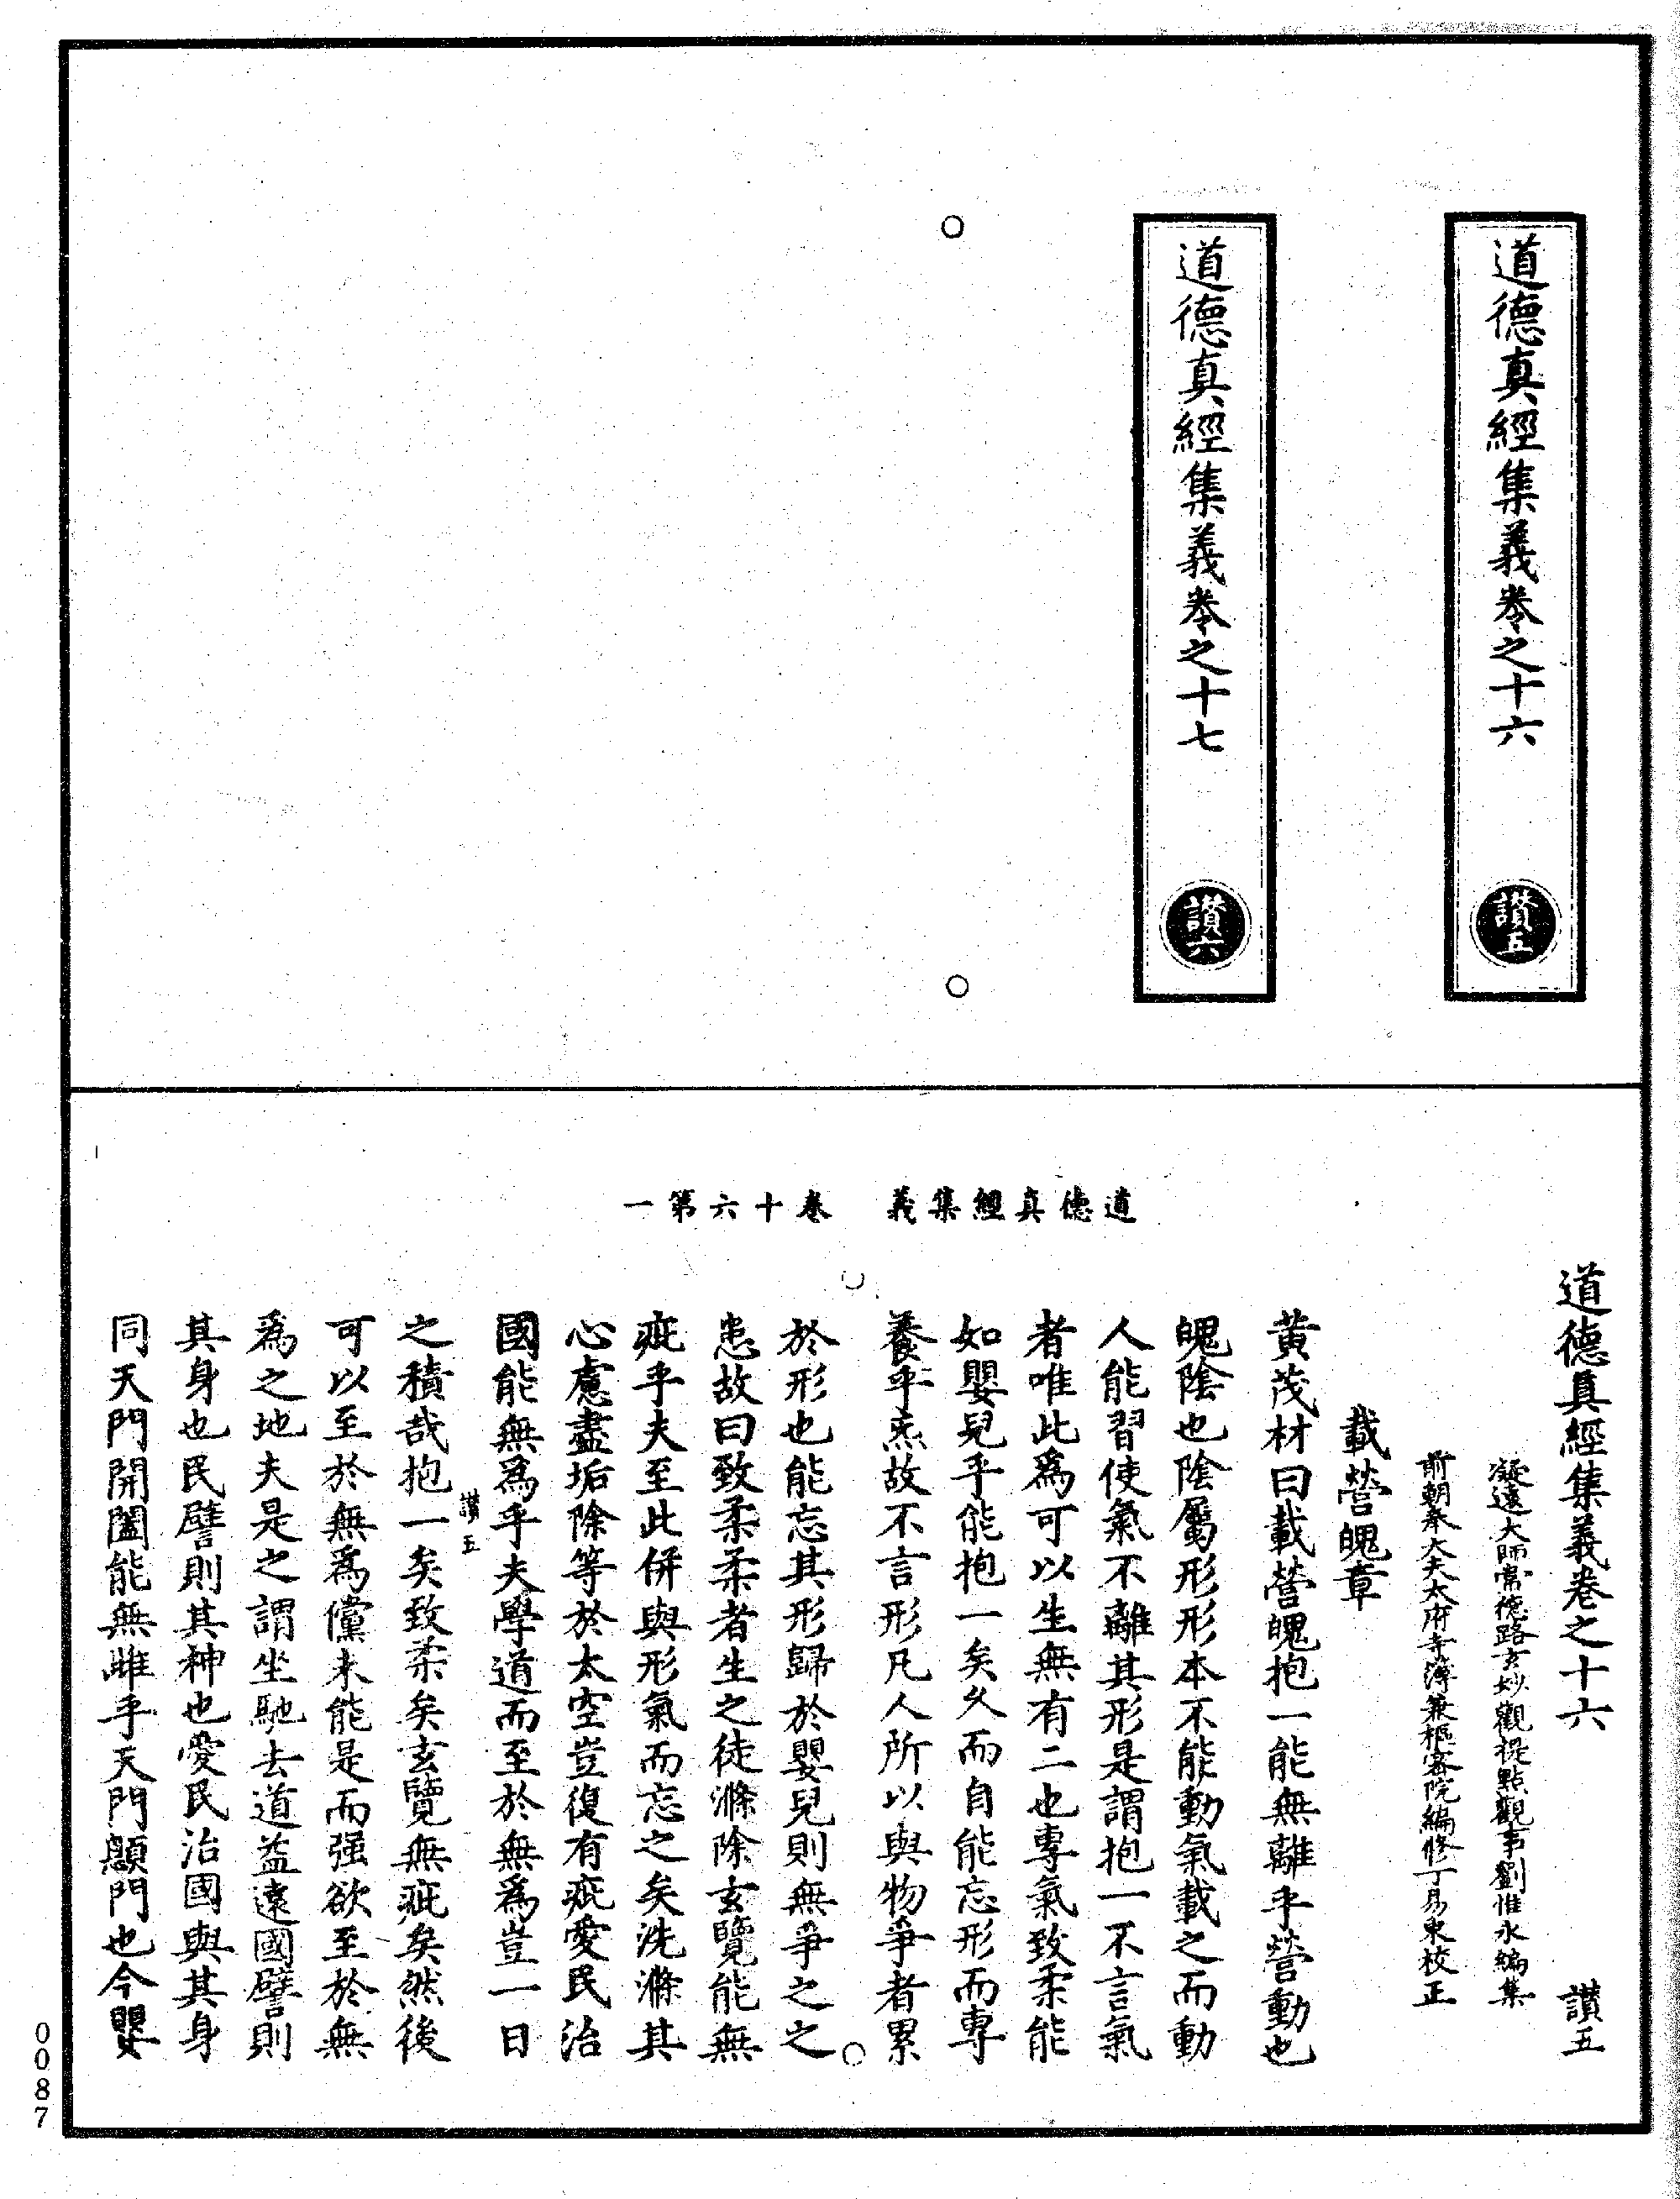 道德真經集義卷之十六
讃五
道德真經集義卷之十七
讃六
道德真經集義　卷十六第一
道德真經集義卷之十六　讃五
凝遠大師常德路玄妙觀提點觀事劉惟永編集
前朝奉大夫太府寺簿兼樞密院編修丁易東校正
載營魄章
黄茂材曰載營魄抱一能無離乎營動也
魄陰也陰屬形形本不能動氣載之而動
人能習使氣不離其形是謂抱一不言氣
者唯此爲可以生無有二也專氣致柔能
如嬰兒乎能抱一矣久而自能忘形而專
養乎炁故不言形凡人所以與物爭者累
於形也能忘其形歸於嬰兒則無爭之之
患故曰致柔柔者生之徒滌除玄覽能無
疵乎夫至此併與形氣而忘之矣洗滌其
心慮盡垢除等於太空豈復有疵愛民治
國能無爲乎夫學道而至於無爲豈一日
讃五
之積哉抱一矣致柔矣玄覽無疵矣然後
可以至於無爲儻未能是而强欲至於無
爲之地夫是之謂坐馳去道益遠國譬則
其身也民譬則其神也愛民治國與其身
同天門開闔能無雌乎天門顖門也今嬰
0087